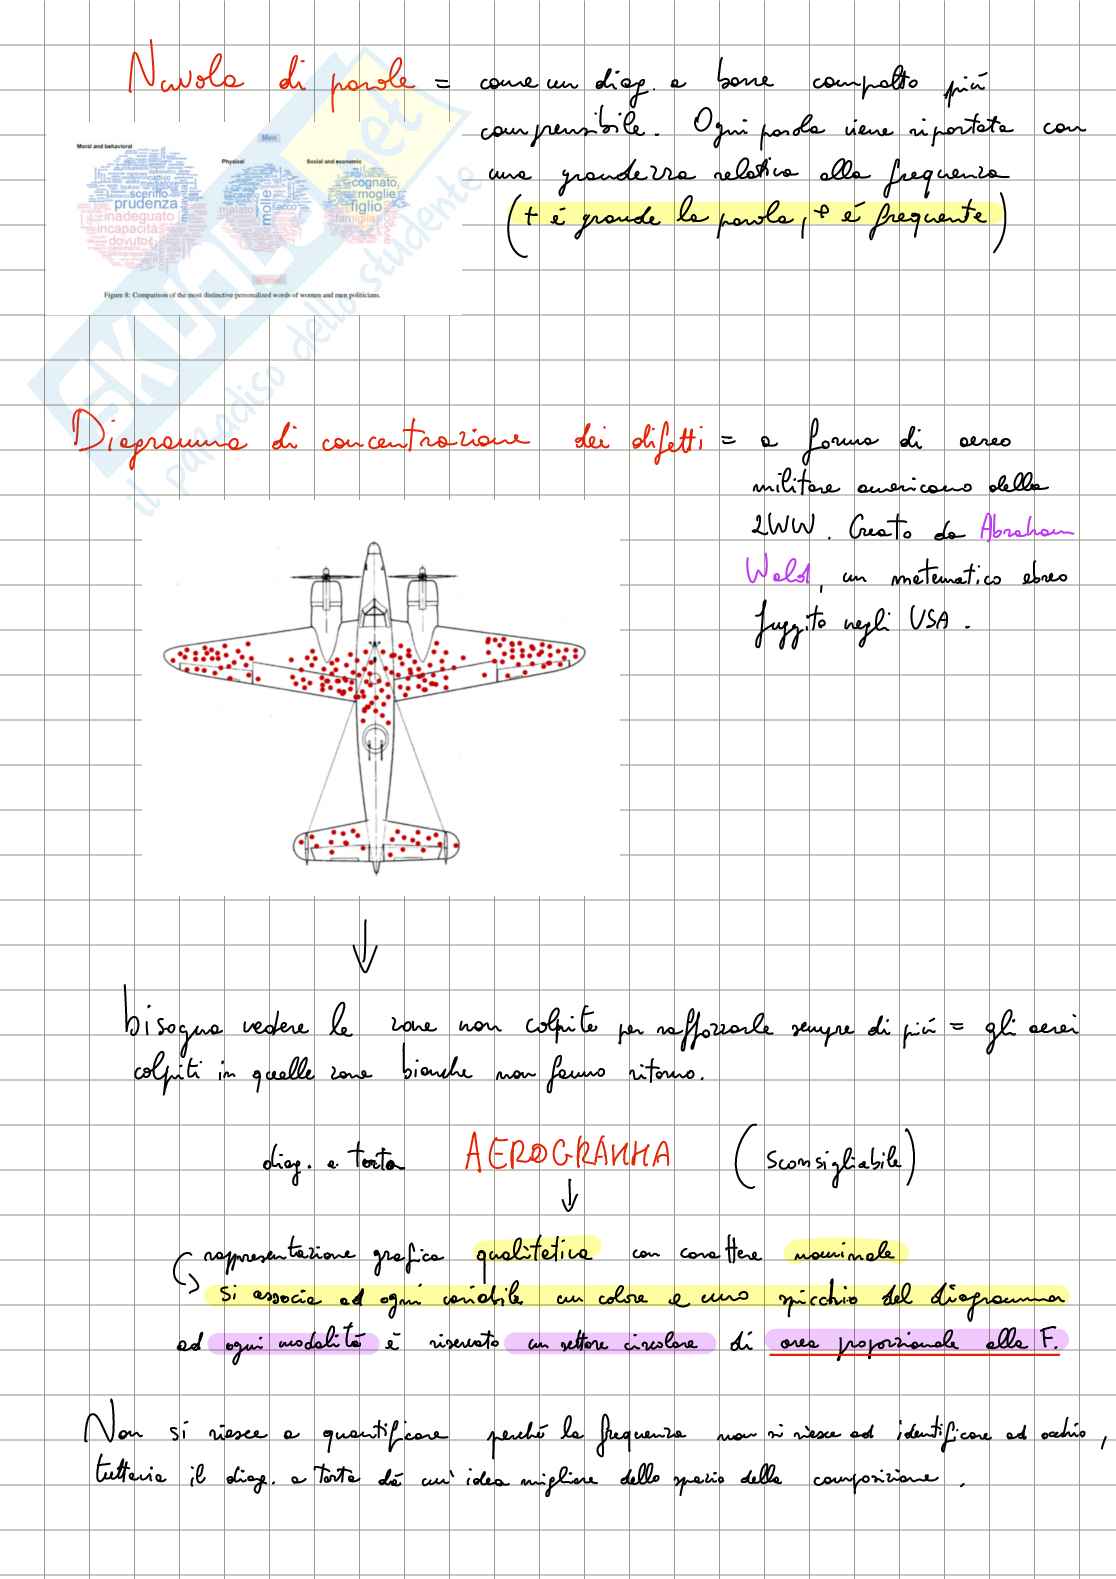 Nuvola di parole = come un diag. a barre compatto più
comprensibile. Ogni parola viene riportata con
una grandezza relativa alla frequenza
(+ è grande la parola, + è frequente)
Men
Moral and behavioral
Physical
Social and economic
sacrificio
prudenza
inadeguato
incapacità
dovuto
molle
malato
cognato
moglie
figlio
famiglia
Figure 8: Comparison of the most distinctive personalized words of women and men politicians.
SKUOLA.net
il paradiso dello studente
Diagramma di concentrazione dei difetti = a forma di aereo
militare americano della
2WW. Creato da Abraham
Wald, un matematico ebreo
fuggito negli USA.
bisogna vedere le zone non colpite per rafforzarle sempre di più = gli aerei
colpiti in quelle zone bianche non fanno ritorno.
diag. a torta AEROGRAMMA (sconsigliabile)
rappresentazione grafica qualitativa con carattere nominale
si associa ad ogni variabile un colore e uno spicchio del diagramma
ad ogni modalità è riservato un settore circolare di area proporzionale alla F.
Non si riesce a quantificare perché la frequenza non si riesce ad identificare ad occhio,
tuttavia il diag. a torta dà un'idea migliore dello spazio della composizione.